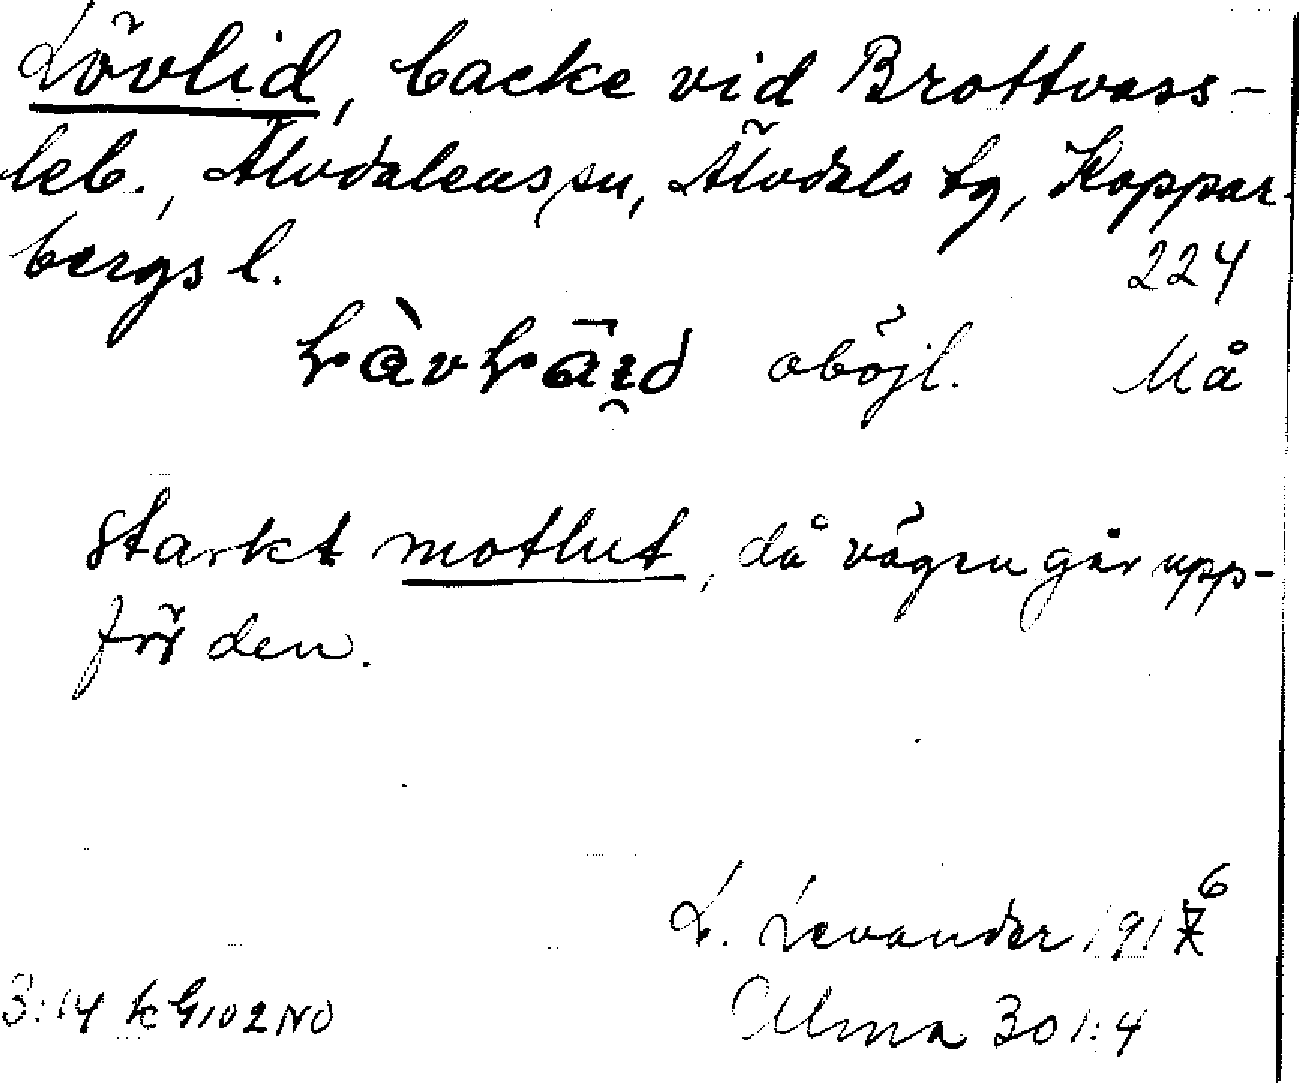 Lövlid, backe vid Brottvass-
leb., Älvdalens sn, Älvdals tg, Koppar-
bergs l.
224
oböjl. Må
starkt motlut, då vägen går upp-
för den.
L. Levander 1916
Ulma 301:4
3:14 k G102NO